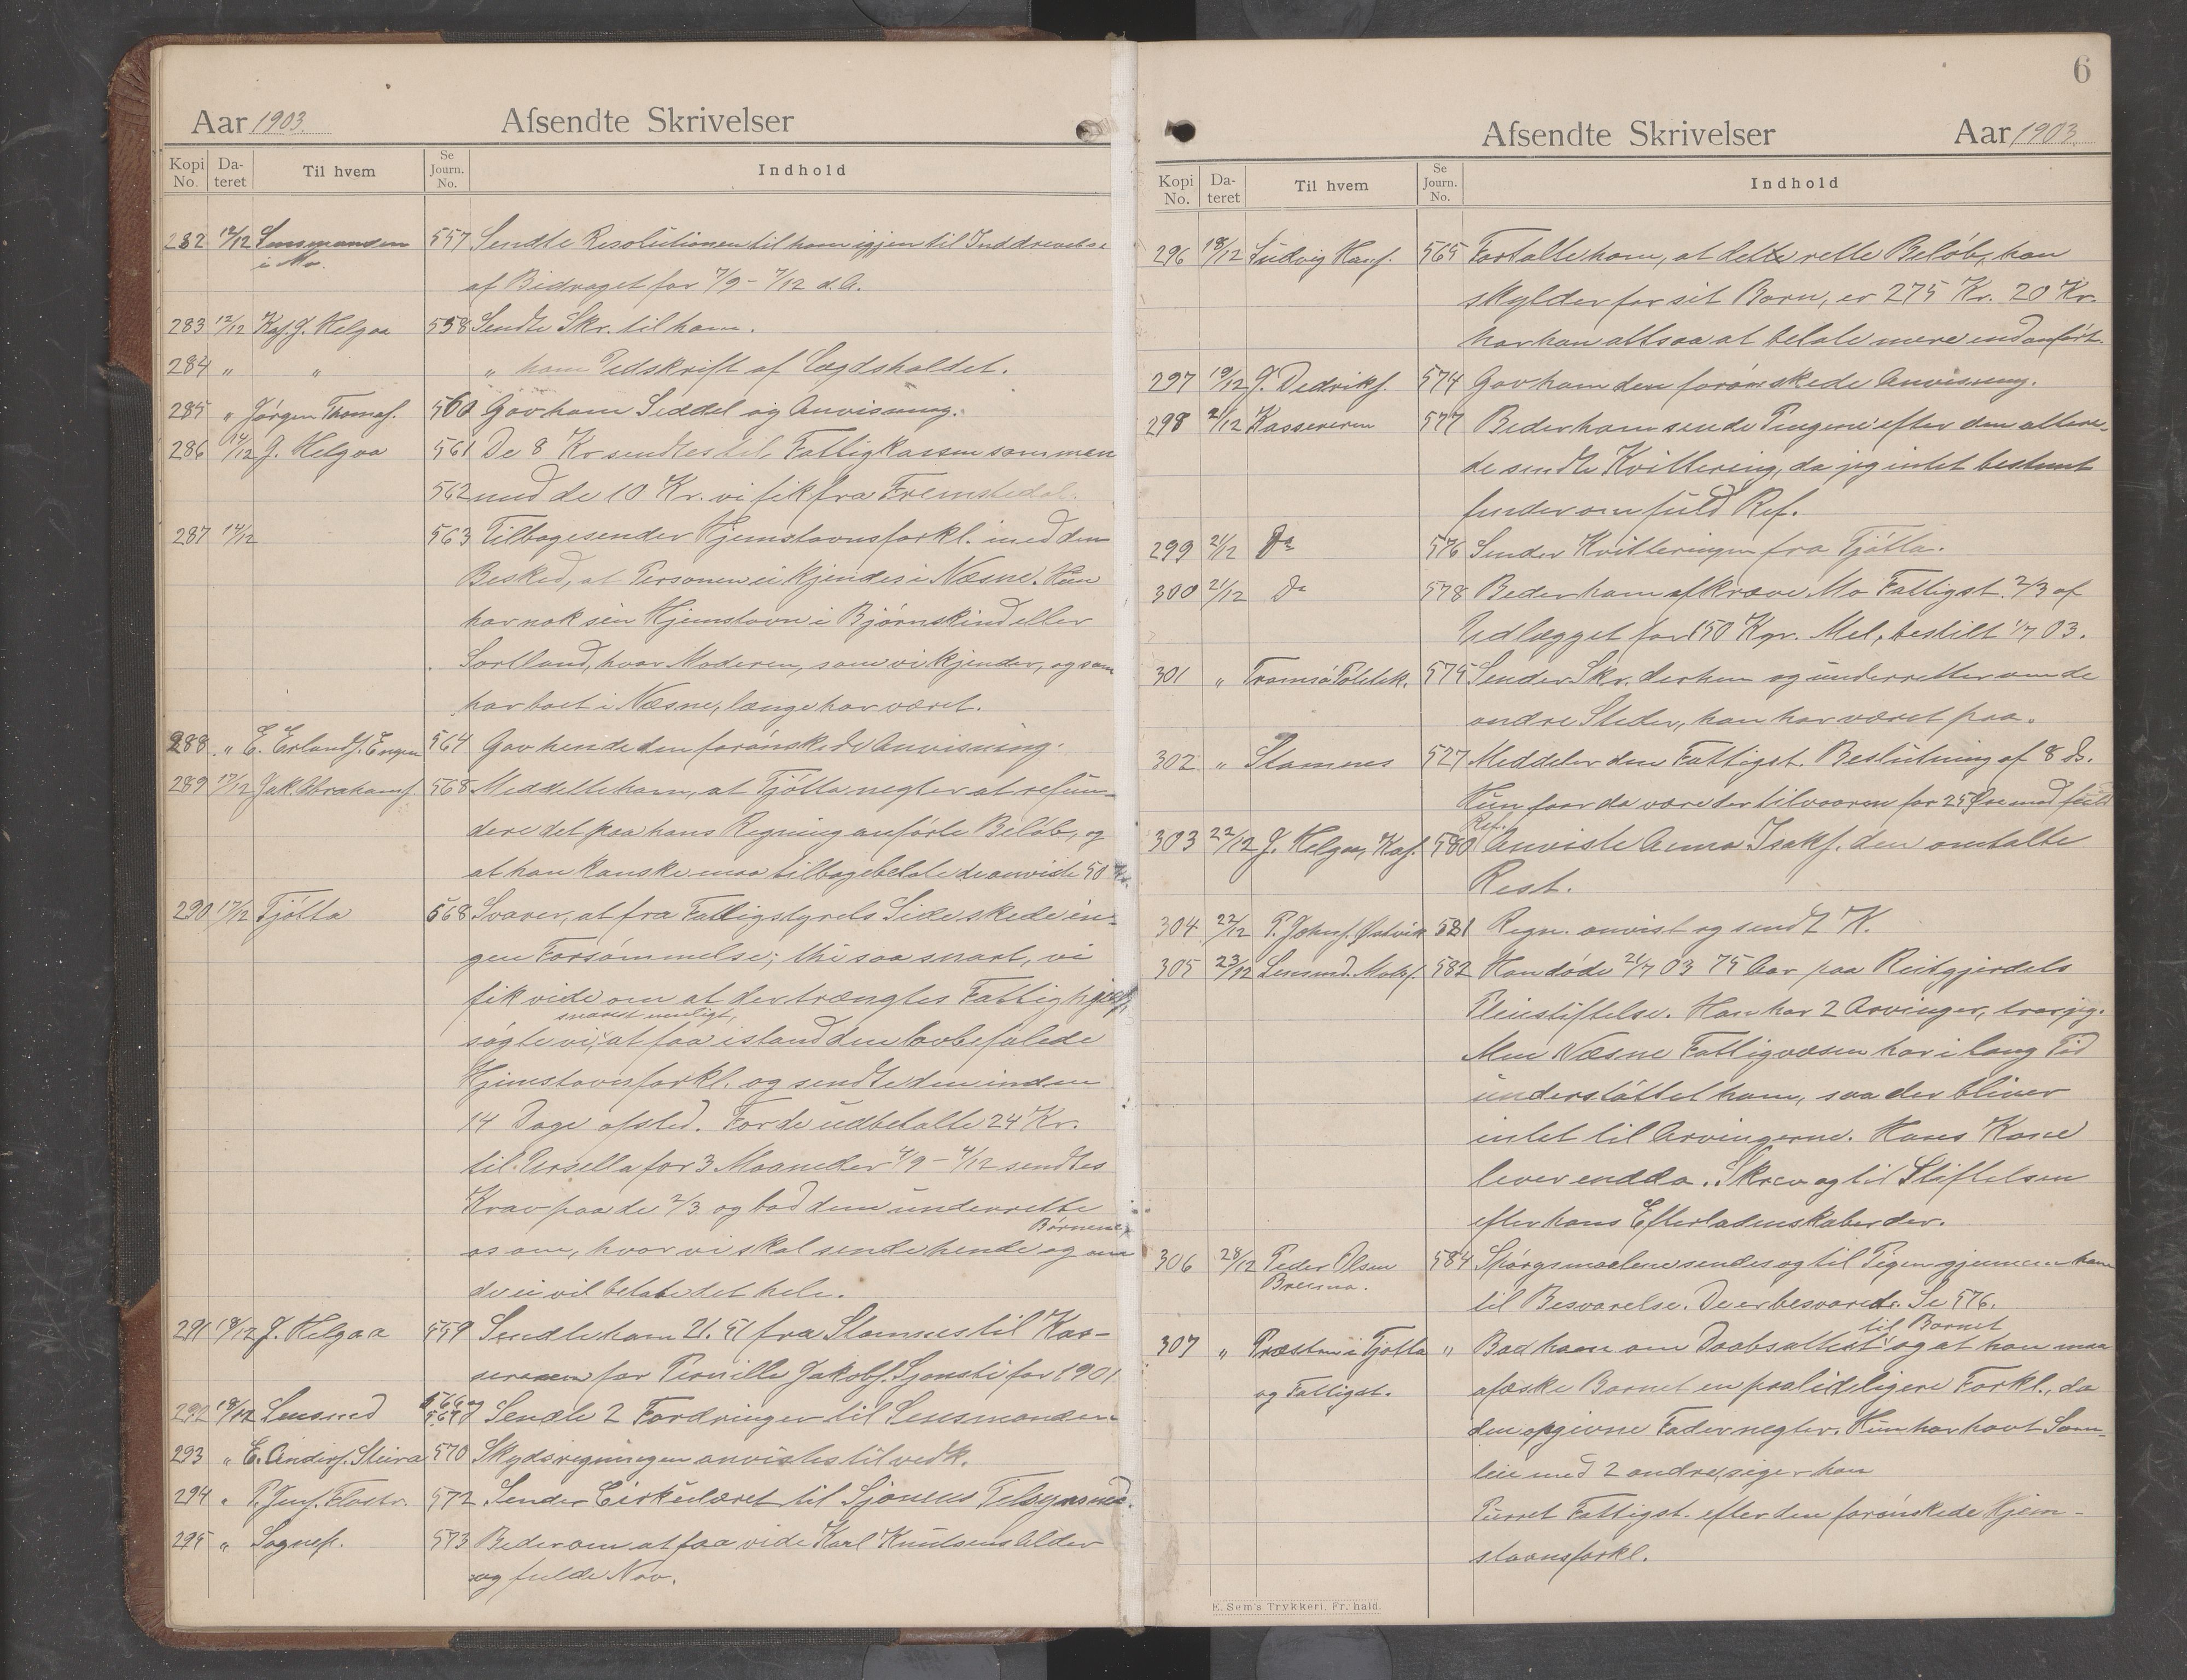 Aar 1903.
Afsendte Skrivelser
Kopi No.
Dateret
Til hvem
Se Journ. No.
Indhold
282 12/12 Lensmanden 557 Sendte Resolutionen til ham igjen til Inddrivelse
i Mo. af Bidraget for 7/9 - 7/12 d. A.
283 12/12 Kas. J. Helgaa 558 Sendte Skr. til ham.
284 " " " ham Udskrift af Lægdsholdet.
285 " Jørgen Thomas. 560 Gav ham Seddel og Anvisning.
286 14/12 J. Helgaa 561 De 8 Kr sendtes til Fattigkassen sammen
562 med de 10 Kr. vi fik fra Fremstedal.
287 14/12 563 Tilbagesender Hjemstavnsforkl. med den
Besked, at Personen ei kjendes i Næsne. Hun
har nok sin Hjemstavn i Bjørnskind eller
Sortland, hvor Moderen, som vi kjender, og som
har boet i Næsne, længe har været.
288 " E. Erlands. Engen 564 Gav hende den forønskede Anvisning.
289 17/12 Jak. Abrahams. 568 Meddelte ham, at Tjøtta negter at refun-
dere det paa hans Regning anførte Beløb, og
at han kanske maa tilbagebetale de anviste 50 Kr.
290 17/12 Tjøtta 568 Svarer, at fra Fattigstyrets Side skede in-
gen Forsømmelse; thi saa snart, vi
fik vide om at der trængtes Fattighjælp,
snarest muligt,
søgte vi at faa istand den lovbefalede
Hjemstavnsforkl. og sendte den inden
14 Dage afsted. For de udbetalte 24 Kr.
til Persella for 3 Maaneder 4/9 - 4/12 sendtes
Krav paa de 2/3 og bad dem underrette
Børnene,
os om, hvor vi skal sende hende og om
de ei vil betale det hele.
291 18/12 J. Helgaa 559 Sendte ham 21.51 fra Stamnes til Kas-
sereren for Pernille Jakobs. Sjonsti for 1901
292 18/12 Lensmd 566 og 567 Sendte 2 Fordringer til Lensmanden
293 " E. Anders. Steira 570 Skydsregningen anvistes til vedk.
294 " P. Jens. Flostr. 572 Sender Cirkulæret til Sjonens Tilsynsmd.
295 " Sognep. 573 Beder om at faa vide Karl Knutsens Alder
og fulde Nav.
6
Afsendte Skrivelser
Aar 1903.
Kopi No.
Dateret
Til hvem
Se Journ. No.
Indhold
296 18/12 Ludvig Hans. 565 Fortalte ham, at dette rette Beløb, han
skylder for sit Barn, er 275 Kr. 20 Kr.
har han altsaa at betale mere end anført.
297 19/12 J. Dedriks. 574 Gav ham den forønskede Anvisning.
298 21/12 Kassereren 577 Beder ham sende Pengene efter den allere-
de sendte Kvittering, da jeg intet bestemt
finder om fuld Ref.
299 21/12 Do 576 Sender Kvitteringen fra Tjøtta.
300 21/12 Do 578 Beder ham afkræve Mo Fattigst. 2/3 af
Udlægget for 150 Kgr. Mel, bestilt 1/7 03.
301 " Tromsø Politik. 579 Sender Skr. derhen og underretter om de
andre Steder, han har været paa.
302 " Stamnes 527 Meddeler den Fattigst. Beslutning af 8 ds.
Hun faar da være der tilvaaren for 25 Øre med fuld
Ref.
303 22/12 J. Helgaa, Kas. 580 Anviste Anna Isaks. den omtalte
Rest.
304 22/12 P. Johns. Østvik 581 Regn. anvist og sendt K.
305 23/12 Lensmd. 582 Han døde 21/7 03 75 Aar paa Reitgjerdets
Pleiestiftelse. Han har 2 Arvinger, tror jeg.
Men Næsne Fattigvæsen har i lang Tid
understøttet ham, saa der bliver
intet til Arvingerne. Hans Kone
lever endda. Skrev og til Stiftelsen
efter hans Efterladenskaber der.
306 28/12 Peder Olsen 584 Spørgsmaalene sendes og til Pigen gjennem ham
til Besvarelse. De er besvaret. Se 576.
til Barnet
307 " Præsten i Tjøtta " Bad ham om Daabsattest og at han maa
og Fattigst. afæske Barnet en paalideligere Forkl., da
den opgivne Fader negter. Hun har havt Sam-
leie med 2 andre, siger han
Purret Fattigst. efter den forønskede Hjem-
stavnsforkl.
E. Sem's Trykkeri, Fr.hald.